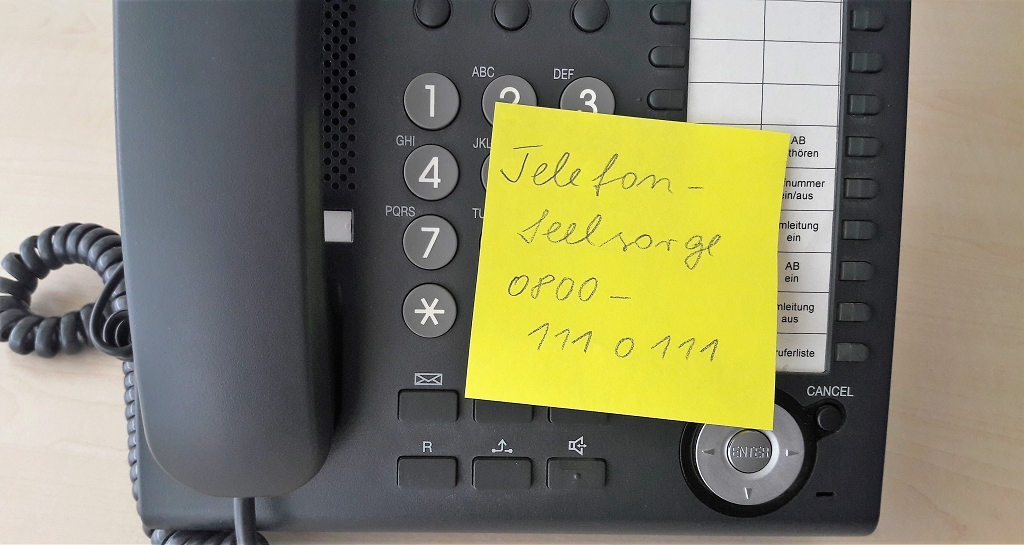 ABC DEF
1 2 3
GHI JKL
4
PQRS TU
7
*
R
Telefon-
Seelsorge
0800-
111 0 111
AB
thören
fnummer
ein/aus
mleitung
ein
AB
ein
mleitung
aus
ruferliste
CANCEL
ENTER